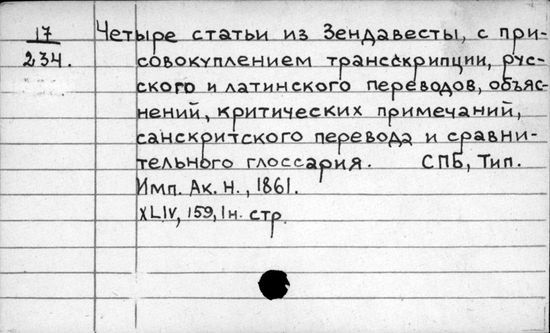 17 Четыре статьи из Зендавесты, с при-
234. совокуплением транскрипции, рус-
ского и латинского переводов, объяс-
нений, критических примечаний,
санскритского перевода и сравни-
тельного глоссария. СПБ, Тип.
Имп. Ак. Н., 1861.
XLIV, 159, 1 н. стр.